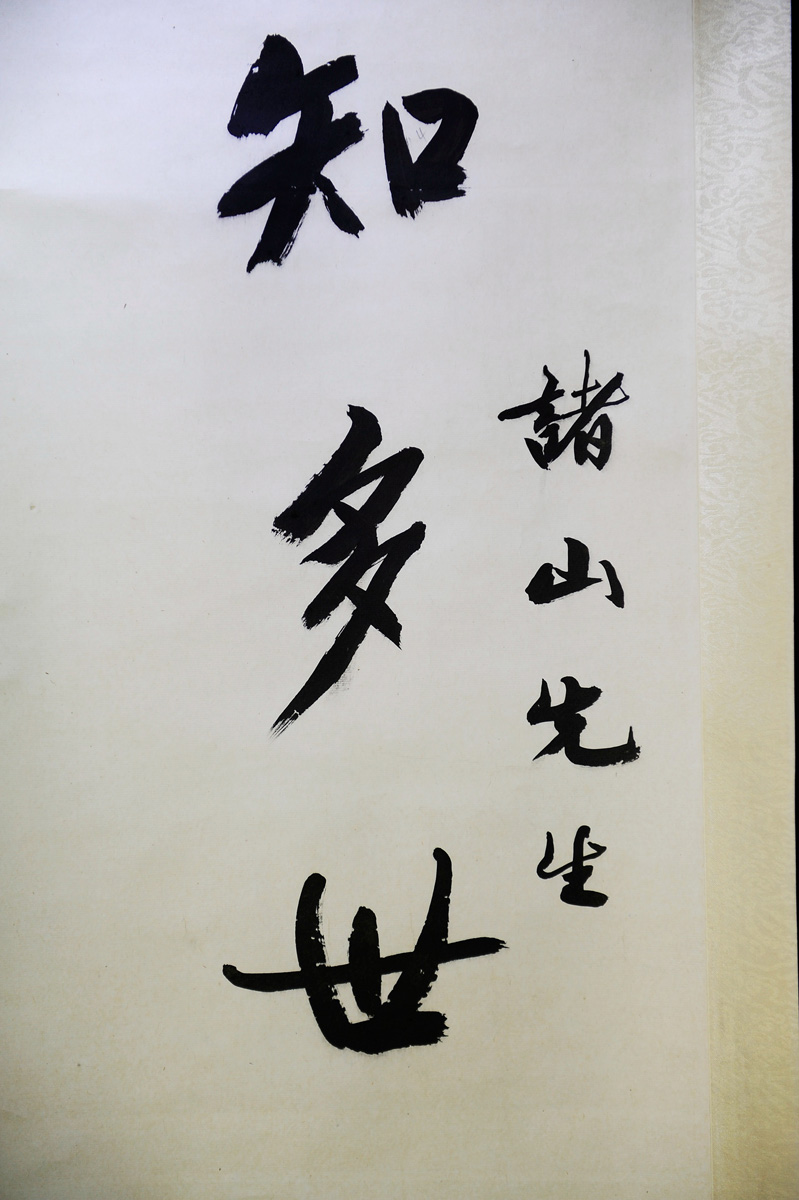 諸山先生
知多世